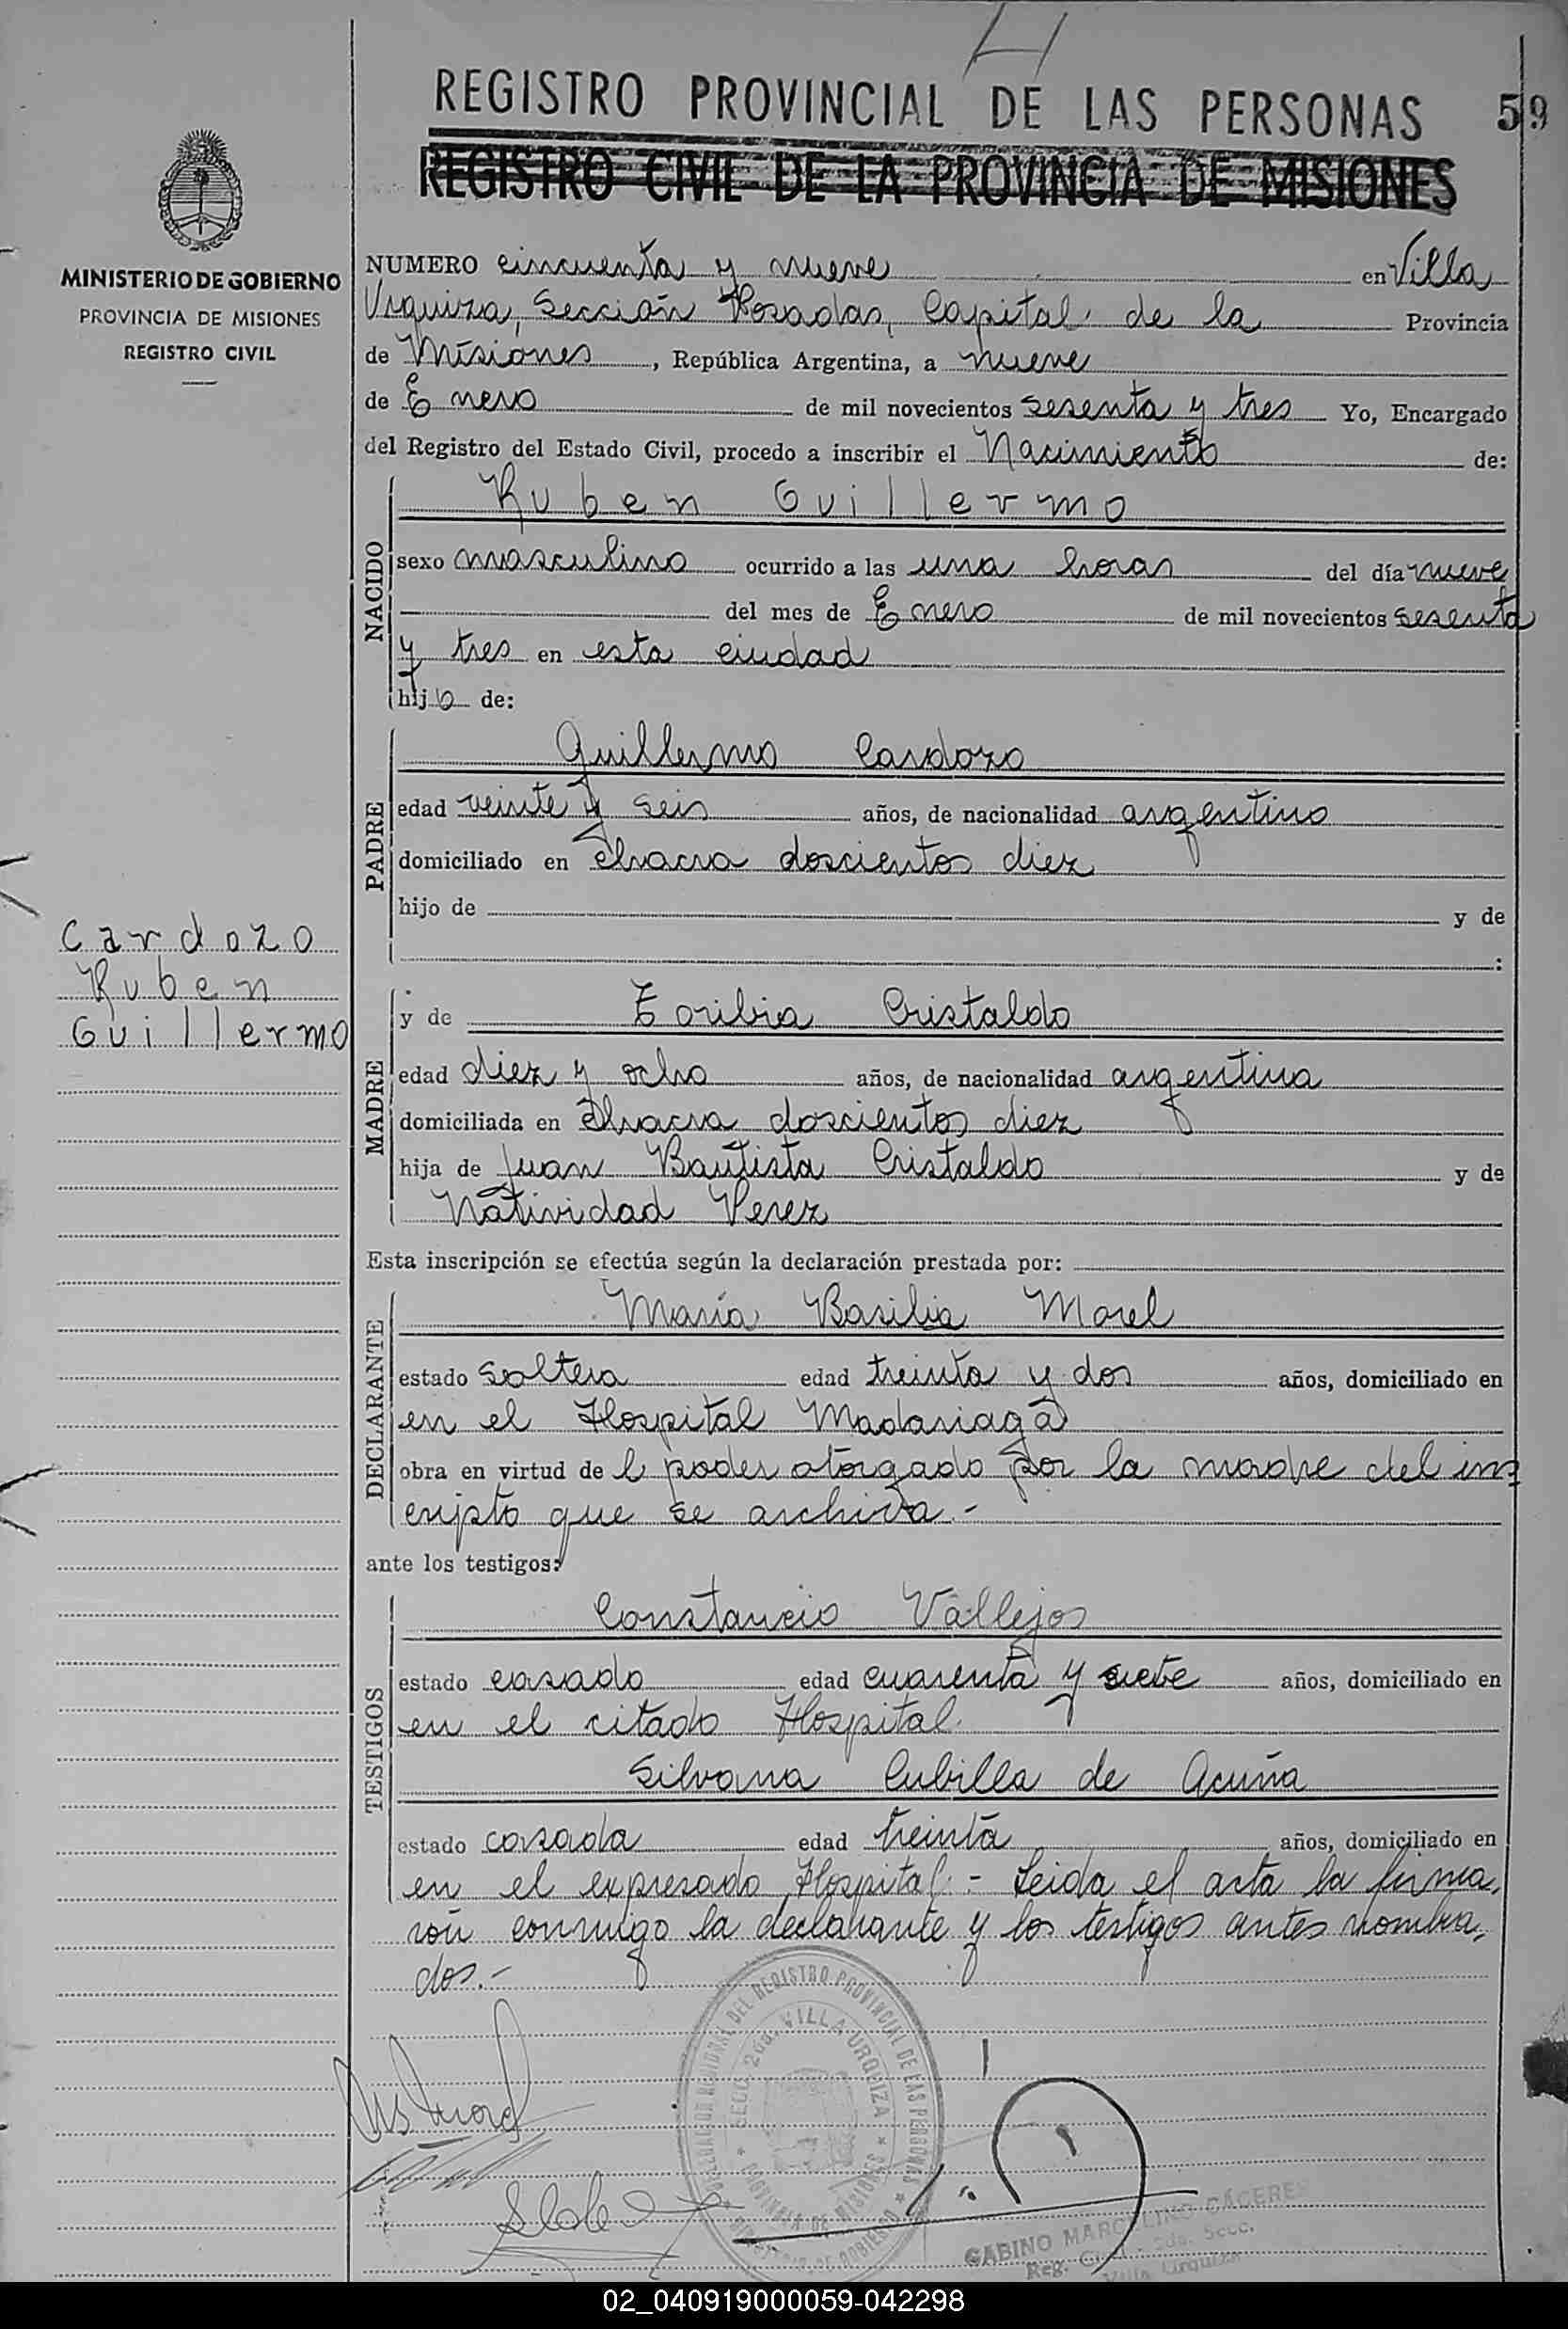 REGISTRO PROVINCIAL DE LAS PERSONAS 59
REGISTRO CIVIL DE LA PROVINCIA DE MISIONES
MINISTERIO DE GOBIERNO
PROVINCIA DE MISIONES
REGISTRO CIVIL
NUMERO cincuenta y nueve en Villa
Urquiza, Sección Posadas, Capital de la Provincia
de Misiones, República Argentina, a nueve
de Enero de mil novecientos sesenta y tres Yo, Encargado
del Registro del Estado Civil, procedo a inscribir el Nacimiento de:
NACIDO
Ruben Guillermo
sexo masculino ocurrido a las una horas del día nueve
del mes de Enero de mil novecientos sesenta
y tres en esta ciudad
hijo de:
PADRE
Guillermo Cardozo
edad veinte y seis años, de nacionalidad argentino
domiciliado en Chacra doscientos diez
hijo de y de
:
Cardozo
Ruben
Guillermo
MADRE
y de Toribia Cristaldo
edad diez y ocho años, de nacionalidad argentina
domiciliada en Chacra doscientos diez
hija de Juan Bautista Cristaldo y de
Natividad Perez
Esta inscripción se efectúa según la declaración prestada por:
DECLARANTE
María Basilia Morel
estado soltera edad treinta y dos años, domiciliado en
en el Hospital Madariaga
obra en virtud de l poder otorgado por la madre del ins
cripto que se archiva.-
ante los testigos:
TESTIGOS
Constancio Vallejos
estado casado edad cuarenta y siete años, domiciliado en
en el citado Hospital.
Silvana Cubilla de Acuña
estado casada edad treinta años, domiciliado en
en el expresado Hospital.- Leida el acta la firma,
ron conmigo la declarante y los testigos antes nombra,
dos.-
REGIONAL DEL REGISTRO PROVINCIAL DE LAS PERSONAS
SECC. 2da. VILLA URQUIZA
PROVINCIA DE MISIONES
MINISTERIO DE GOBIERNO
GABINO MARCELINO CACERES
Reg. Civil - 2da. Secc.
Villa Urquiza
02_040919000059-042298